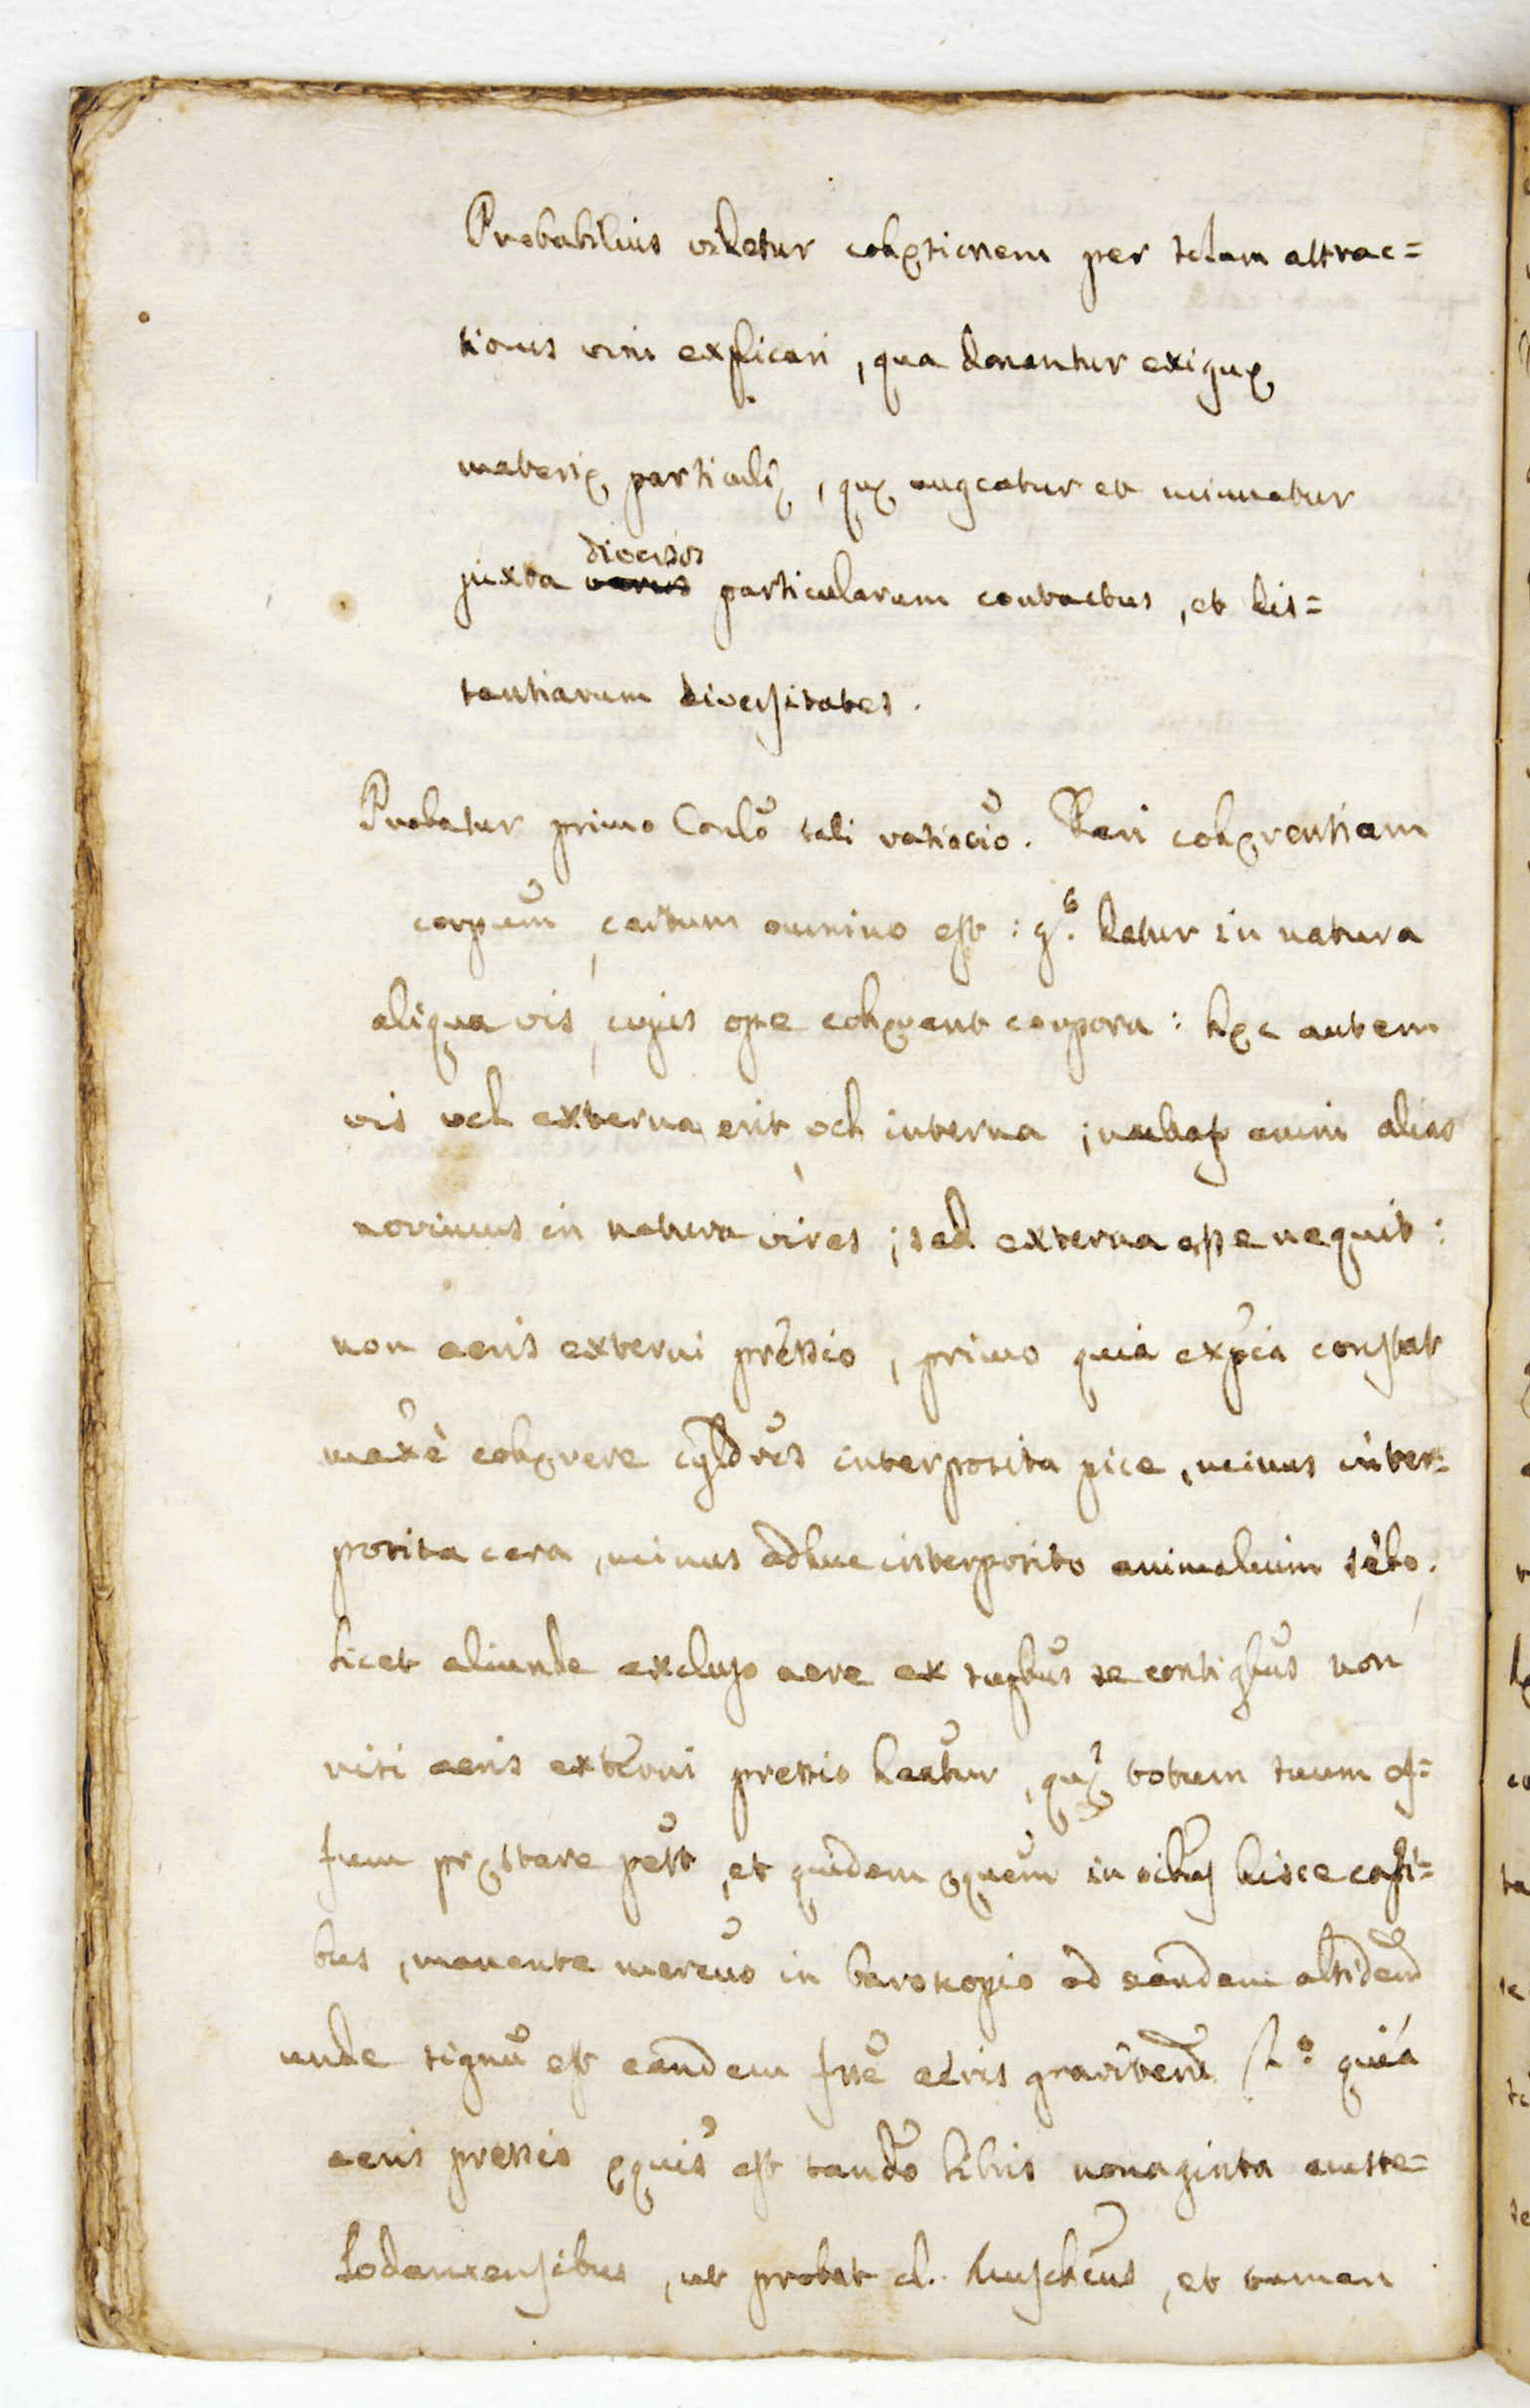 Probabilius videtur cohęsionem per solam attrac=
tionis vim explicari, qua donantur exiguę
materię particulę, quę augeatur et minuatur
diversos
juxta varios particularum contactus, et dis=
tantiarum diversitates.
Probatur primo Conclo tali ratiocio. Dari cohęrentiam
corpum, certum omnino est: gº. datur in natura
aliqua vis, cujus ope cohęreant corpora: hęc autem
vis vel externa erit, vel interna; nullas enim alias
novimus in natura vires; sed externa esse nequit:
non aeris externi pressio, primo quia expcia constat
maxè cohęrere cyldros interposita pice, minus inter=
posita cera, minus adhuc interposito animalium sebo,
licet aliunde excluso aere ex supbus se contigbus non
nisi aeris externi pressio deatur, quę totum suum ef=
fum pręstare pest, et quidem ęquem in oibus hisce casi=
bus, manente mercuo in baroscopio ad eandem altidem
unde signu est eandem fuse aeris gravitem. 2º. quia
aeris pressio ęquis est tando libris nonaginta amste=
lodamensibus, ut probat cl. Muscheus, et tamen